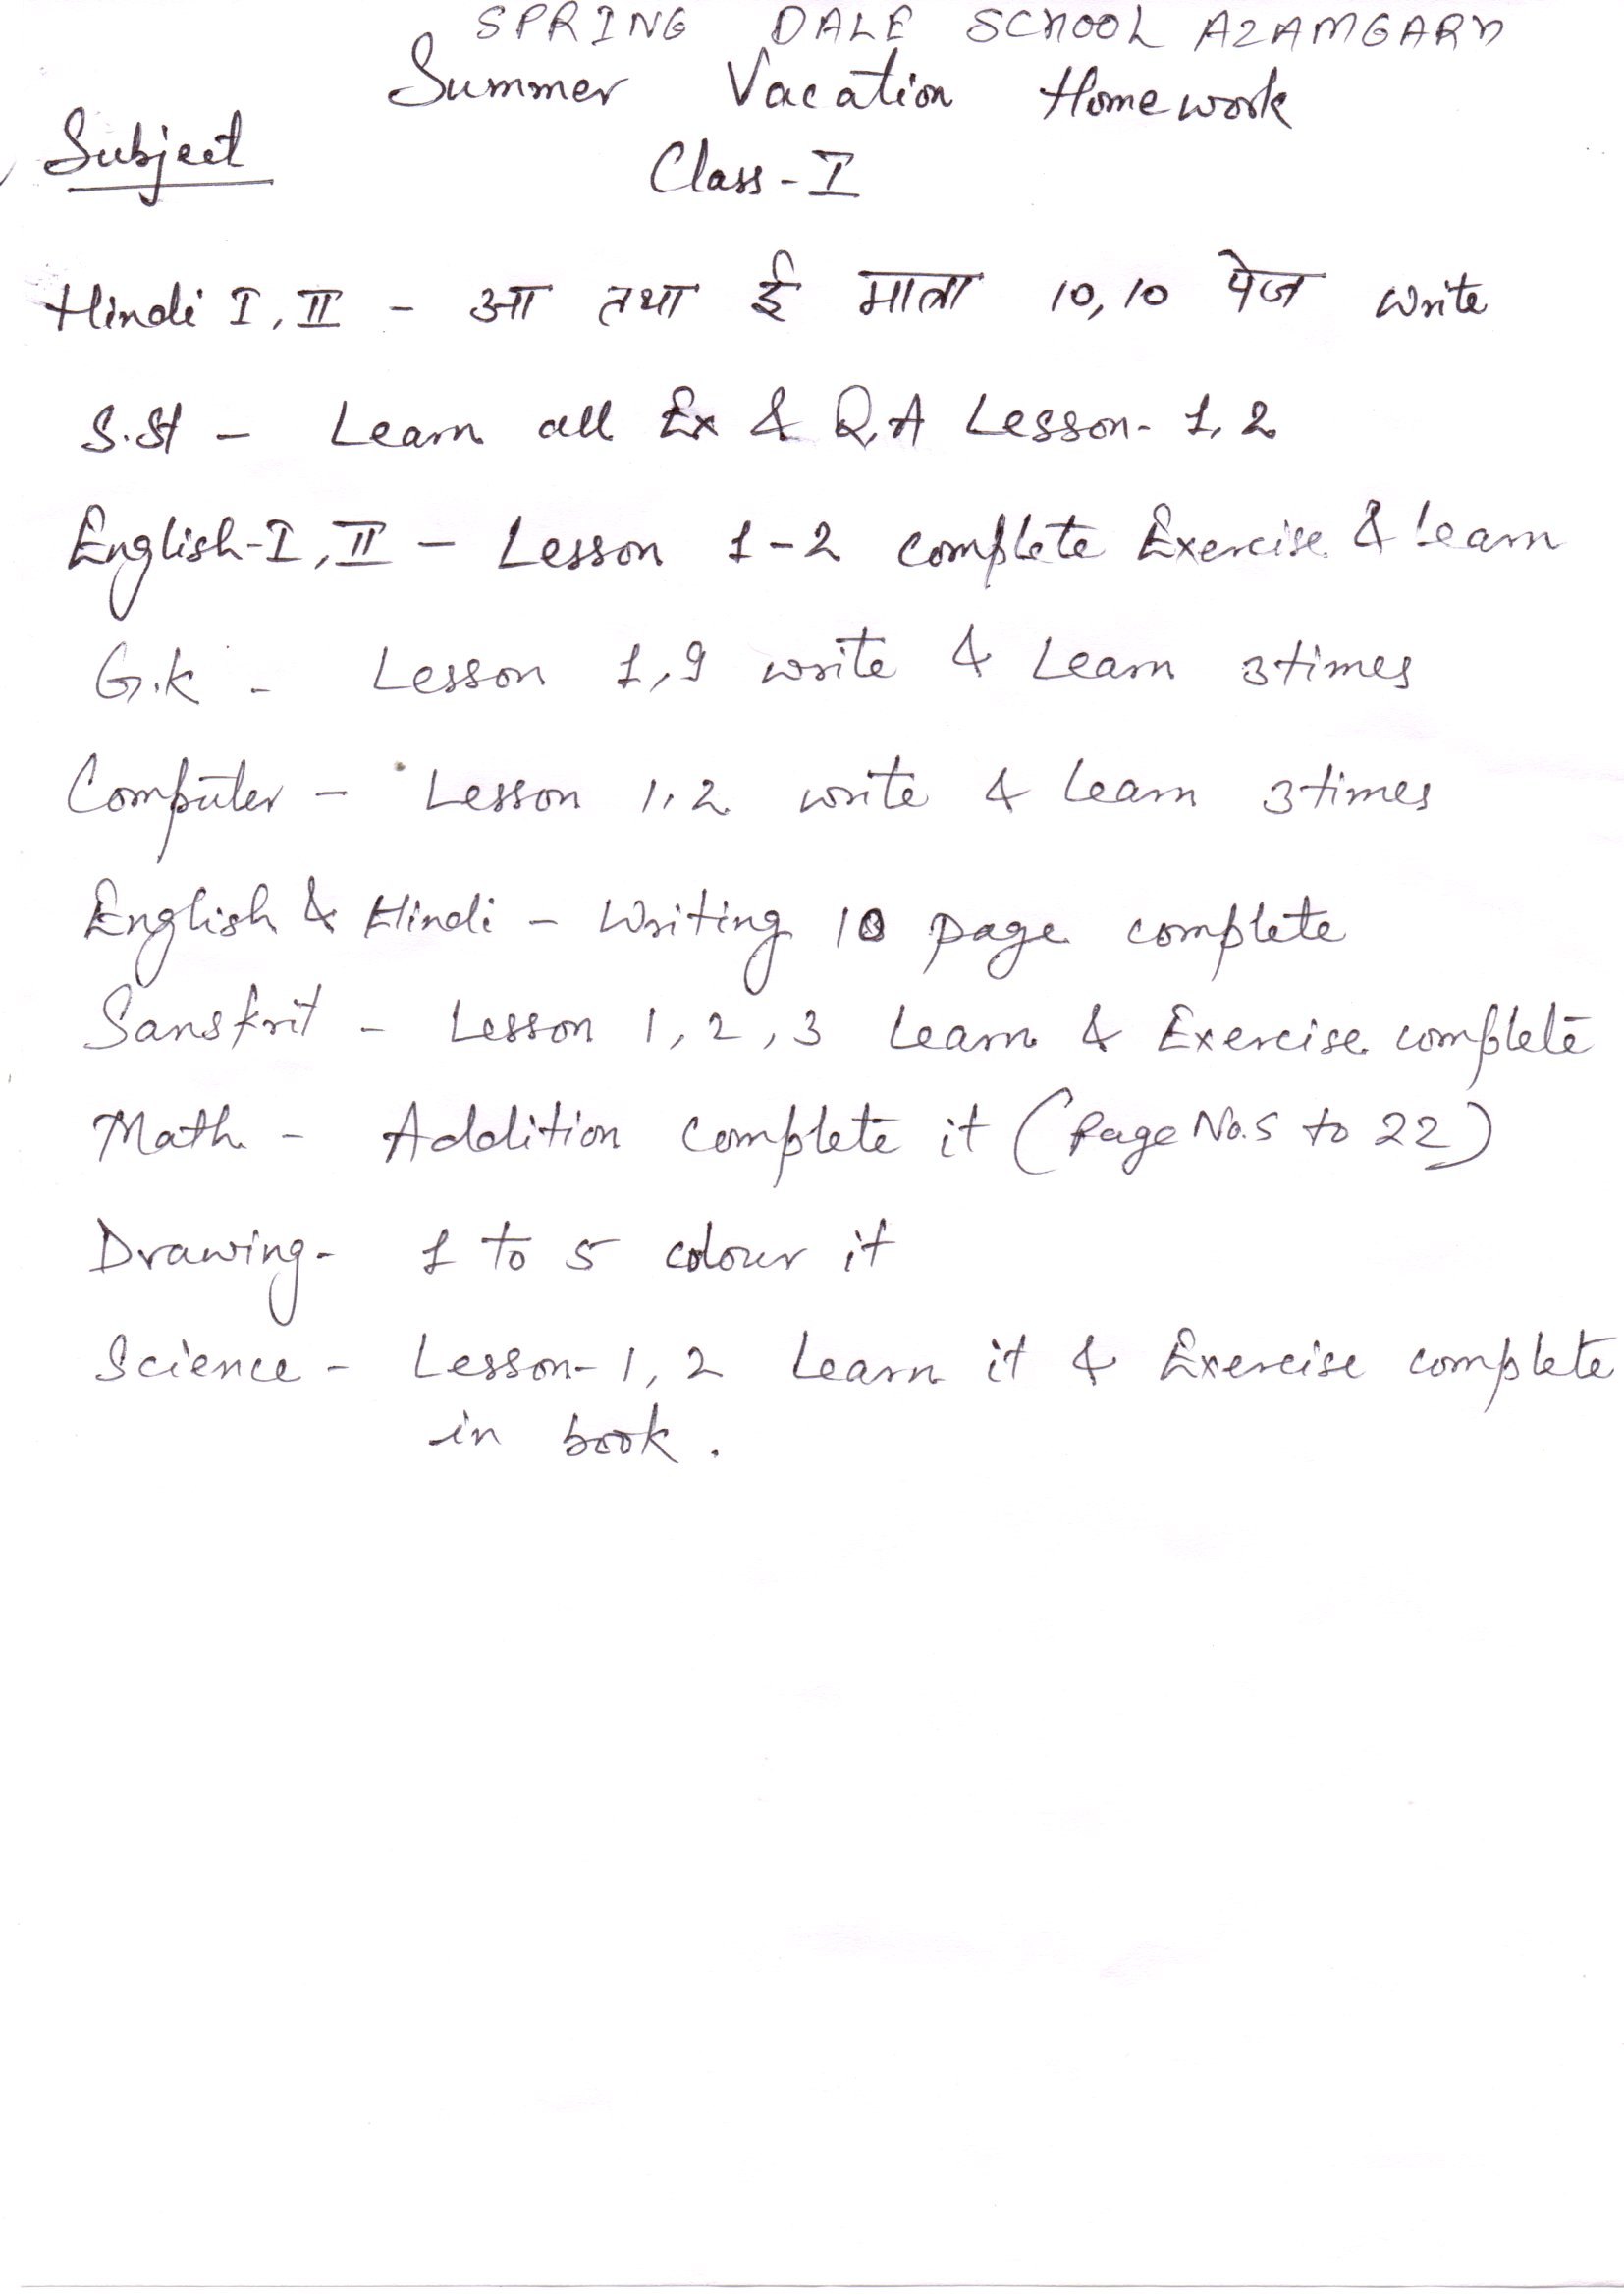 SPRING DALE SCHOOL AZAMGARH
Summer Vacation Homework
Subject
Class - I
Hindi I, II - आ तथा ई मात्रा 10, 10 पेज write
S.St - Learn all Ex & Q.A Lesson - 1, 2
English - I, II - Lesson 1 - 2 complete Exercise & learn
G.k - Lesson 1, 9 write & Learn 3 times
Computer - Lesson 1, 2 write & learn 3 times
English & Hindi - Writing 10 page complete
Sanskrit - Lesson 1, 2, 3 Learn & Exercise complete
Math - Addition complete it (Page No. 5 to 22)
Drawing - 1 to 5 colour it
Science - Lesson - 1, 2 Learn it & Exercise complete
in book.